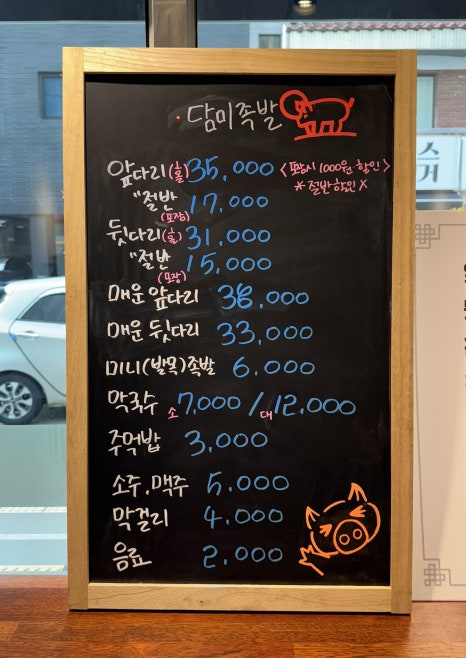 담미족발
앞다리(홀) 35,000 <포장시 1000원 할인>
"절반 17,000 * 절반할인 X
(포장)
뒷다리(홀) 31,000
"절반 15,000
(포장)
매운 앞다리 38,000
매운 뒷다리 33,000
미니(발목)족발 6,000
막국수 소 7,000 / 대 12,000
주먹밥 3,000
소주, 맥주 5,000
막걸리 4,000
음료 2,000
스
거